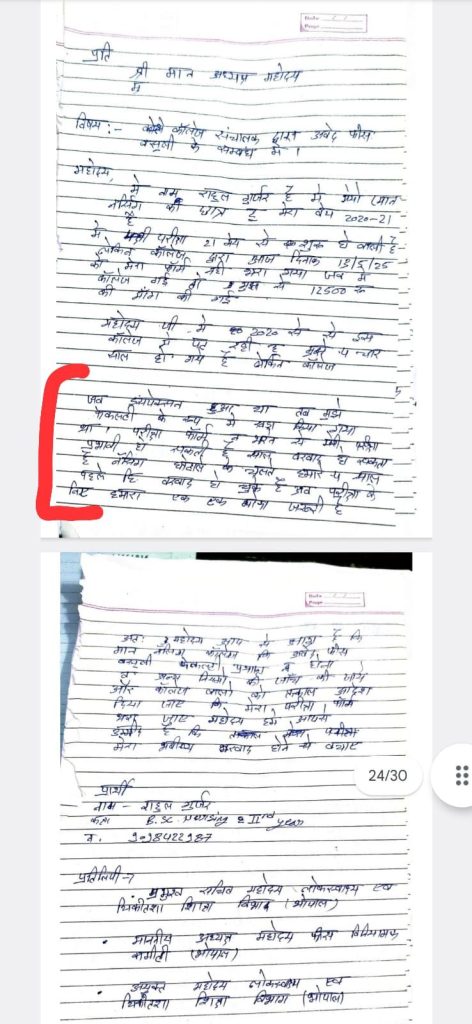 Date
Page
प्रति
श्री मान अध्यक्ष महोदय
म
विषय:- कॉलेज संचालक द्वारा अवेद फीस
वसूली के सम्बंध में ।
महोदय,
मे नाम राहुल गुर्जर है में
नर्सिंग की छात्र हु मेरा बेच 2020-21
है
में परीक्षा 21 मेय से शुरू हो वाली है
लेकिन कॉलेज द्वारा आज दिनाक 15/5/25
को मेरा फॉर्म नही भरा गया जब में
कॉलेज गई तो मुझ से 12500 रू
की माँग की गई
महोदय जी में 2020 से से इस
कॉलेज से पढ़ रही हू मुझे य चार
साल हो गये है लेकिन कॉलेज
जब इंस्पेक्सन हुआ था तब मुझे
फेकल्टी के रूप में खड़ा किया गया
था । परीक्षा फॉर्म न भरने से मेरी परीक्षा
प्रभावी हो सकती है साल बरबाद हो सकता
है नर्सिंग घोटाले के चलते हमारे य साल
पहले हि बरबाद हो चुके है अब परीक्षा के
लिए हमारा एक एक जरूरी है
Date
Page
अतः महोदय आप से आग्रह है कि
मान नर्सिंग कॉलेज कि अवेद फीस
वसूली फेकल्टी
व अन्य नियमो की जाँच की जाये
और कॉलेज वालो को तत्काल आदेश
दिया जाए कि मेरा परीक्षा फॉर्म
भरा जाए महोदय हमे आपसे
उम्मीद है कि तत्काल परीक्षा
मेरा भविष्य बरबाद होने से बचाए
24/30
प्रार्थी
नाम - राहुल गुर्जर
कक्षा B.SC. Nursing IInd year
न. 9098422987
प्रतिलिपी -
• प्रमुख सचिव महोदय लोकस्वास्थ्य एव
चिकीत्सा शिक्षा विभाग (भोपाल)
• माननीय अध्यक्ष महोदय फीस विनियामक
कमीटी (भोपाल)
• आयुक्त महोदय लोकस्वास्थ्य एव
चिकीत्सा शिक्षा विभाग (भोपाल)